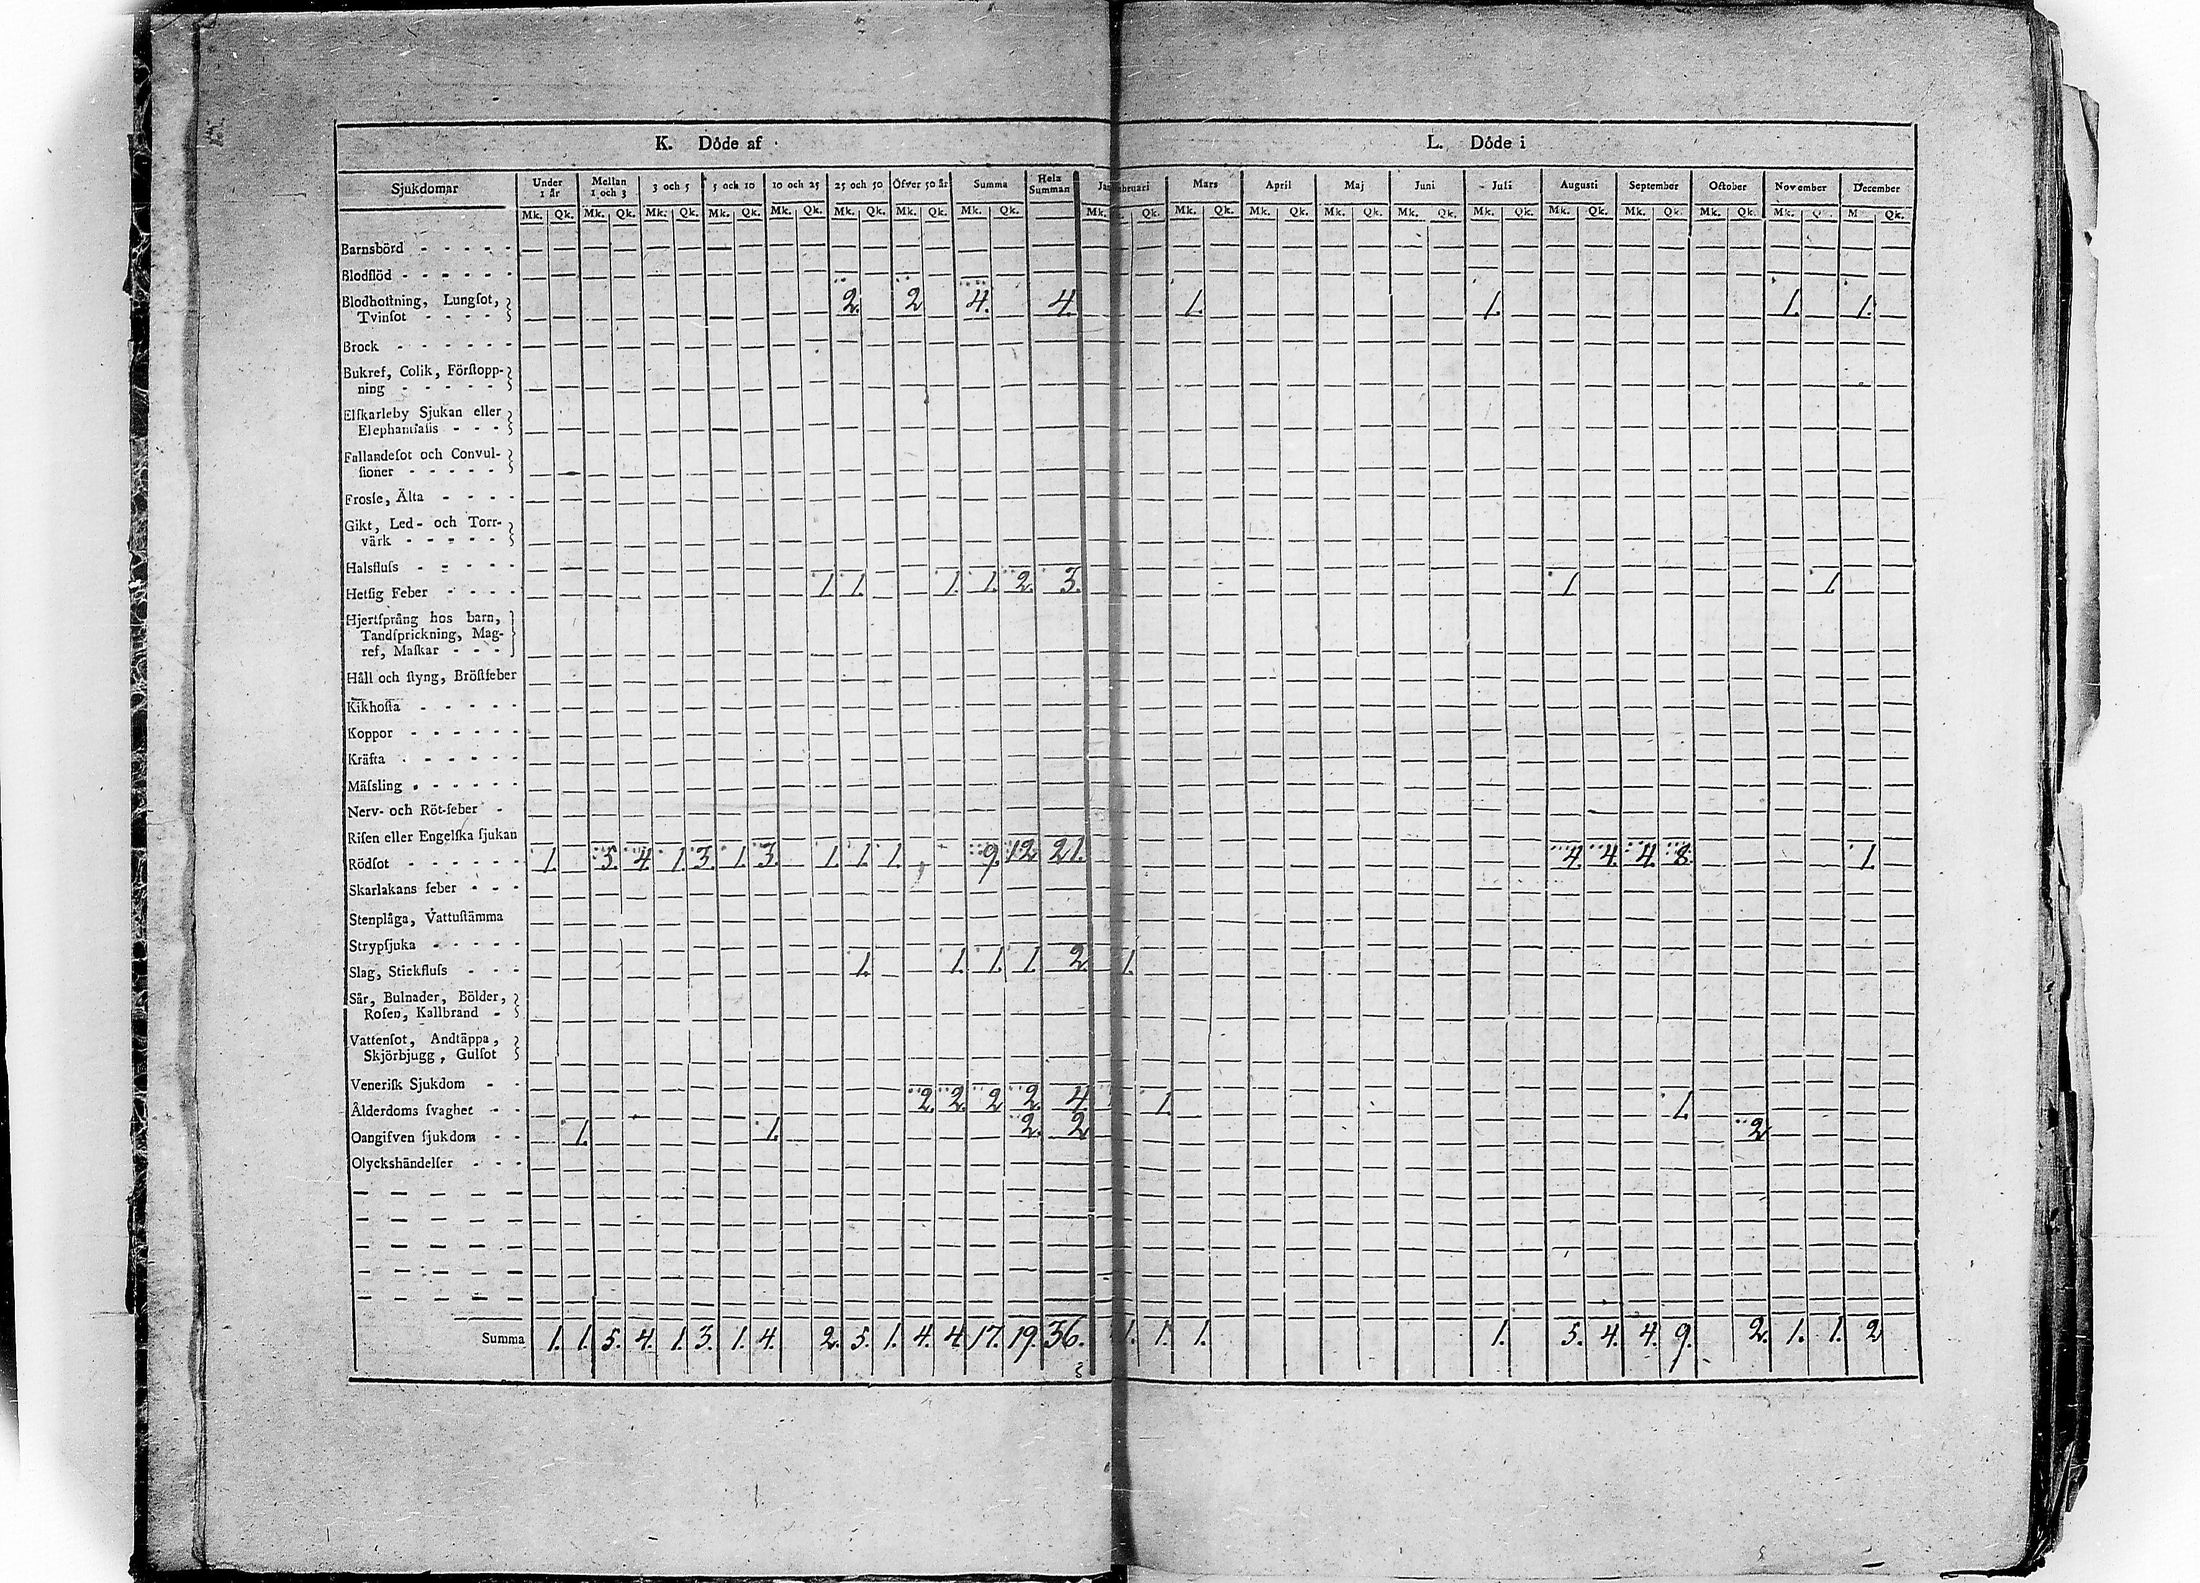 K. Döde af
L. Döde i
Sjukdomar Under 1 år Mellan 1 och 3 3 och 5 5 och 10 10 och 25 25 och 50 Öfver 50 år Summa Hela Summan Februari Mars April Maj Juni Juli Augusti September October November December
Mk. Qk. Mk. Qk. Mk. Qk. Mk. Qk. Mk. Qk. Mk. Qk. Mk. Qk. Mk. Qk. Mk. Qk. Mk. Qk. Mk. Qk. Mk. Qk. Mk. Qk. Mk. Qk. Mk. Qk. Mk. Qk. Mk. Qk. Mk. Mk. Qk.
Barnsbörd
Blodflöd
Blodhostning, Lungsot,
Tvinsot 2. 2 4. 4. 1. 1. 1. 1.
Brock
Bukref, Colik, Förstopp-
ning
Elfkarleby Sjukan eller
Elephantiasis
Fallandesot och Convul-
sioner
Frossa, Älta
Gikt, Led- och Torr-
värk
Halsfluss
Hetsig Feber 1. 1. 1. 1. 2. 3. 1. 1.
Hjertsprång hos barn,
Tandsprickning, Mag-
ref, Maskar
Håll och styng, Bröstfeber
Kikhosta
Koppor
Kräfta
Mässling
Nerv- och Röt-feber
Risen eller Engelska sjukan
Rödsot 1. 5. 4. 1. 3. 1. 3. 1. 1. 1. 9. 12 21. 4. 4. 4. 8. 1.
Skarlakans feber
Stenplåga, Vattustämma
Strypsjuka
Slag, Stickfluss 1. 1. 1. 1. 2. 1.
Sår, Bulnader, Bölder,
Rosen, Kallbrand
Vattensot, Andtäppa,
Skjörbjugg, Gulsot
Venerisk Sjukdom
Ålderdoms svaghet 2. 2. 2 2. 4. 1. 1.
Oangifven sjukdom 1. 1. 2. 2 2
Olyckshändelser
Summa 1. 1. 5. 4. 1. 3. 1. 4. 2. 5. 1. 4. 4. 17. 19. 36. 1. 1. 1. 1. 5. 4. 4. 9. 2. 1. 1. 2